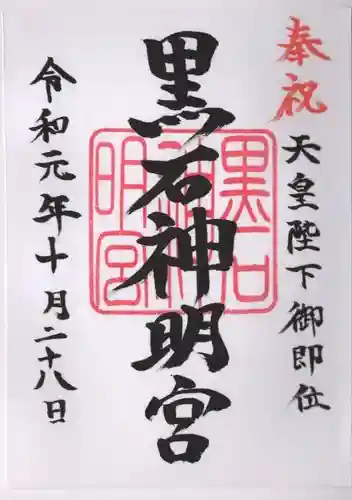 奉祝
天皇陛下御即位
黒石神明宮
黒石
神
明宮
令和元年十月二十八日